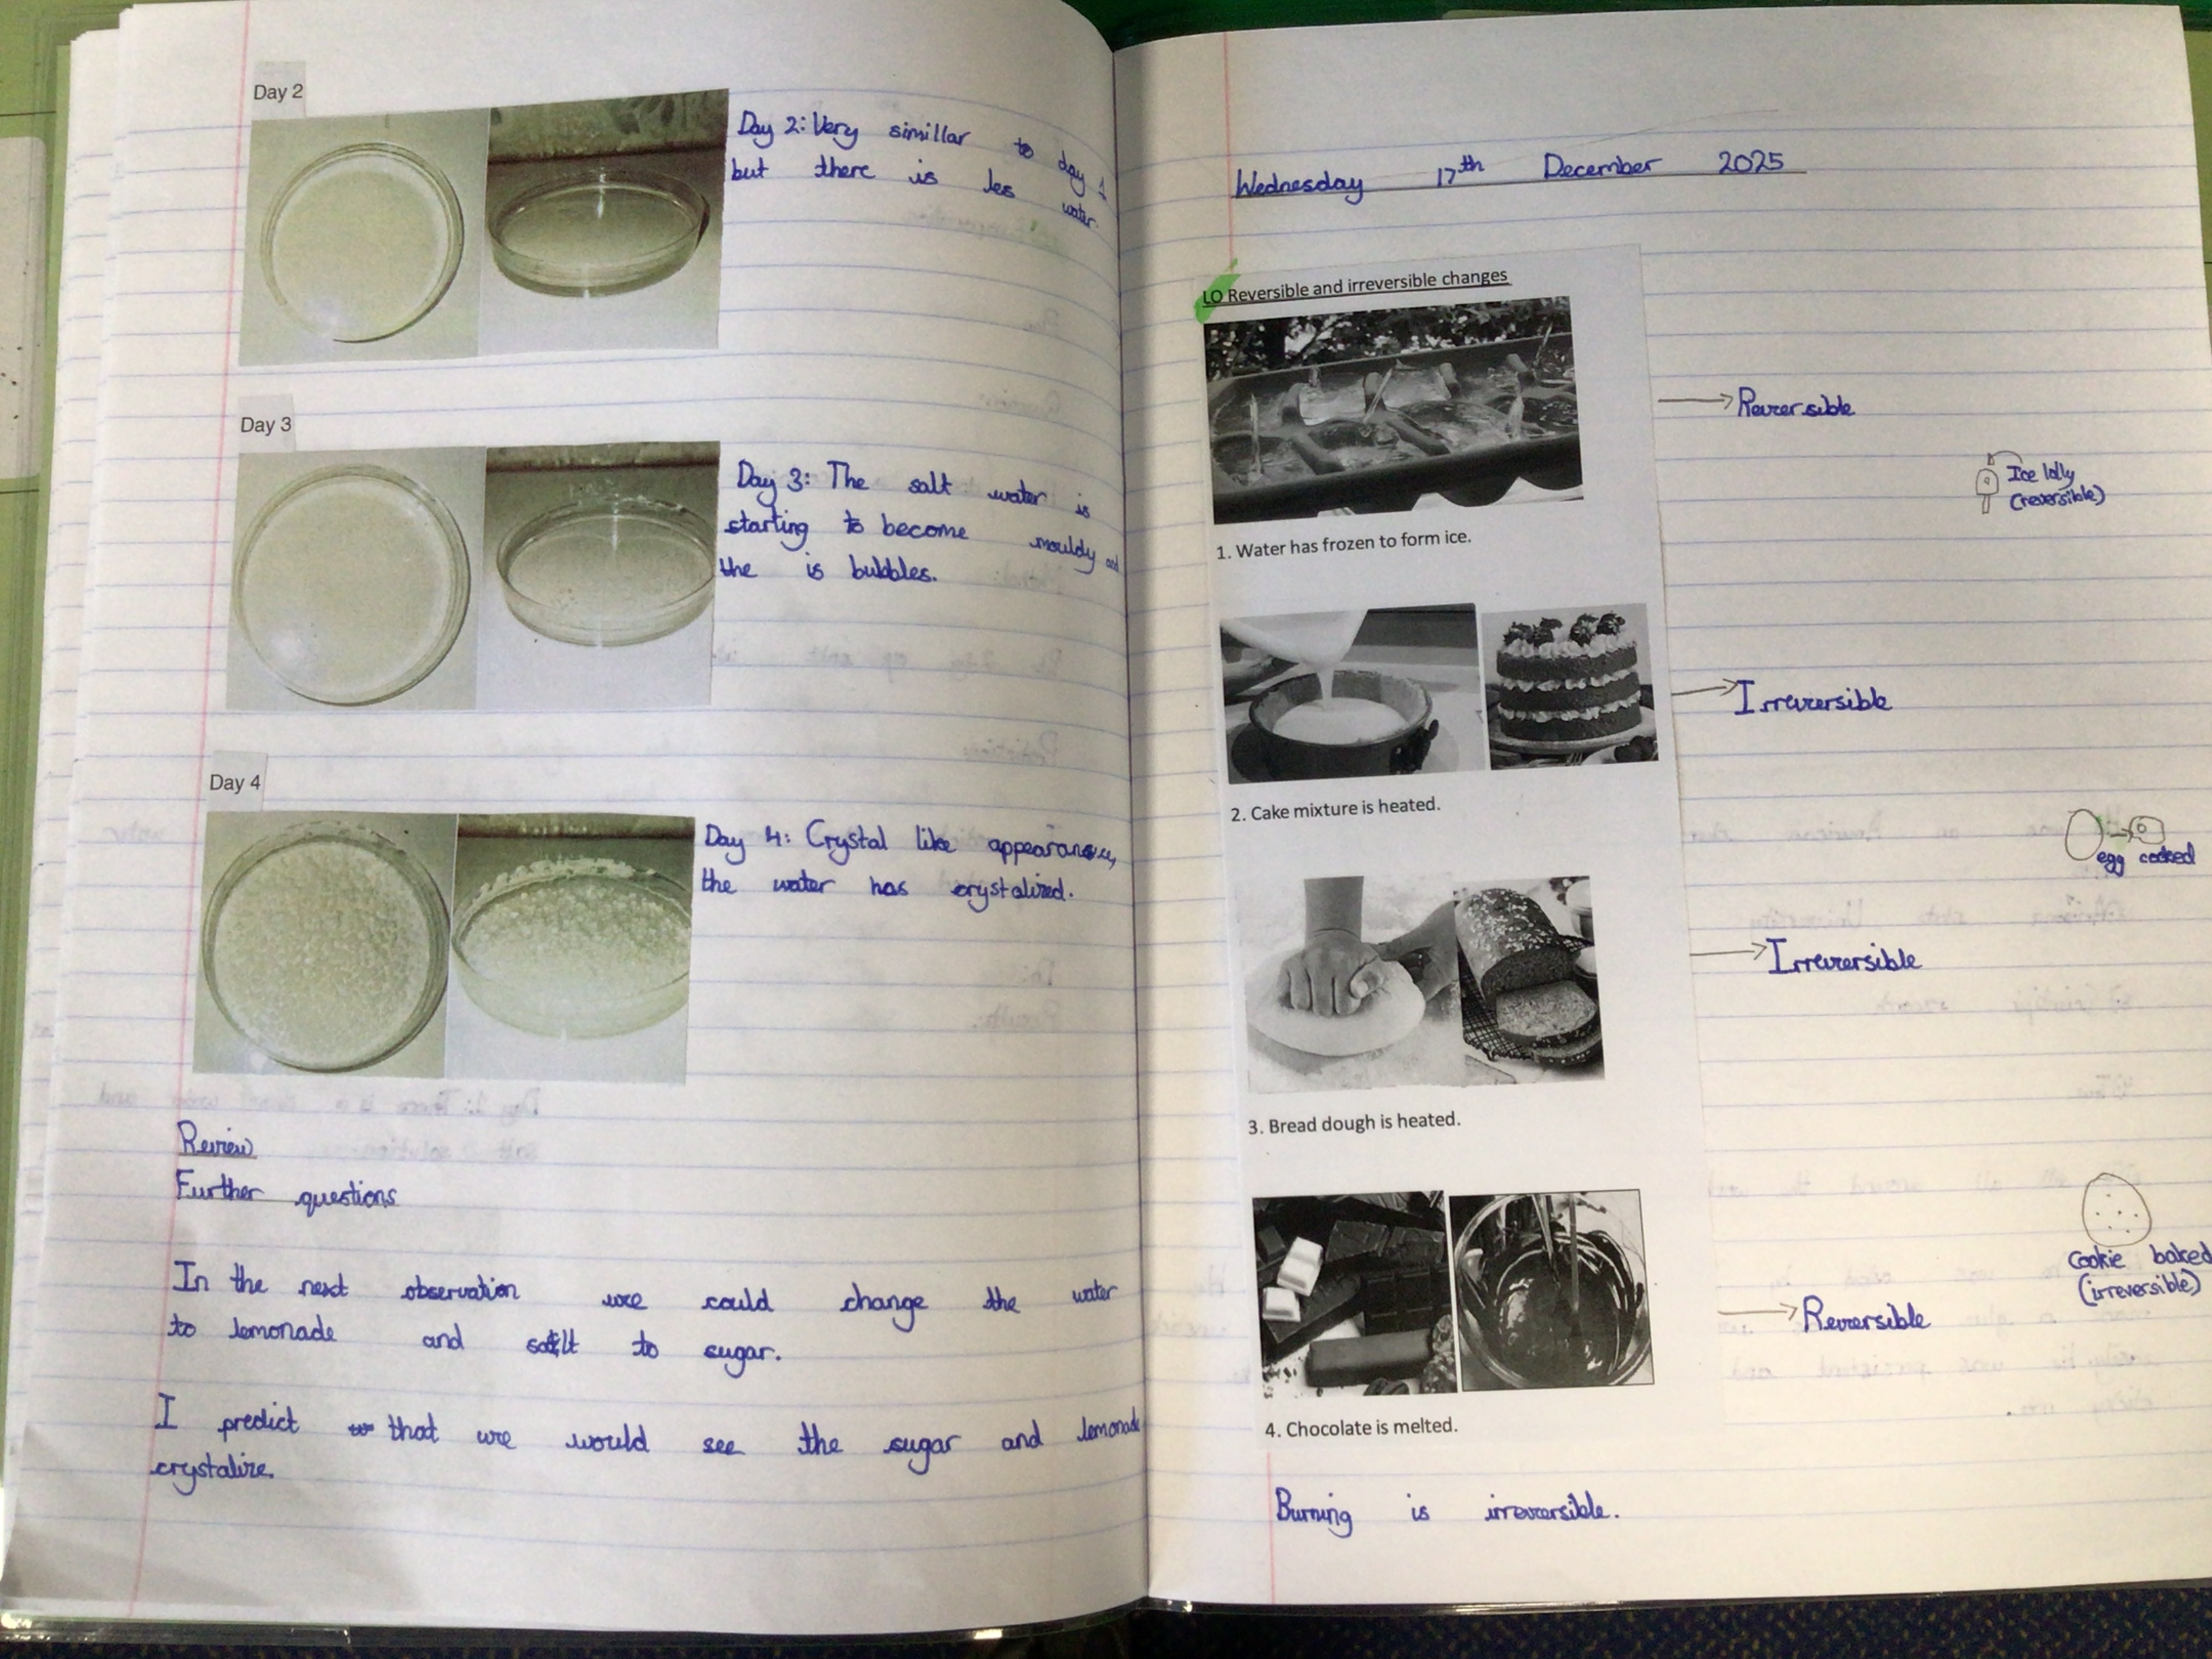 Day 2
Day 2: Very simillar to day 1
but there is les water.
Day 3
Day 3: The salt water is
starting to become mouldy and
the is bubbles.
Day 4
Day 4: Crystal like appearance,
the water has crystalized.
Review
Further questions
In the next observation we could change the water
to lemonade and salt to sugar.
I predict that we would see the sugar and lemonade
crystalize.
Wednesday 17th December 2025
LO Reversible and irreversible changes
Reversible
Ice lolly
(reversible)
1. Water has frozen to form ice.
Irreversible
2. Cake mixture is heated.
egg cooked
Irreversible
3. Bread dough is heated.
Cookie baked
(irreversible)
Reversible
4. Chocolate is melted.
Burning is irreversible.